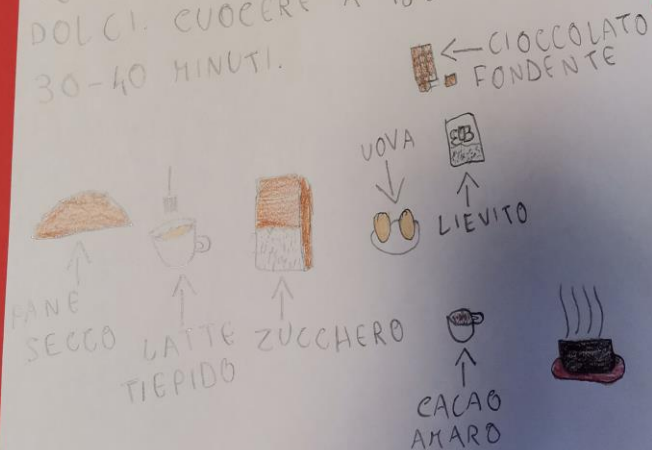 DOLCI. CUOCERE A
30-40 MINUTI.
CIOCCOLATO
FONDENTE
UOVA
LIEVITO
PANE
SECCO
LATTE
TIEPIDO
ZUCCHERO
CACAO
AMARO